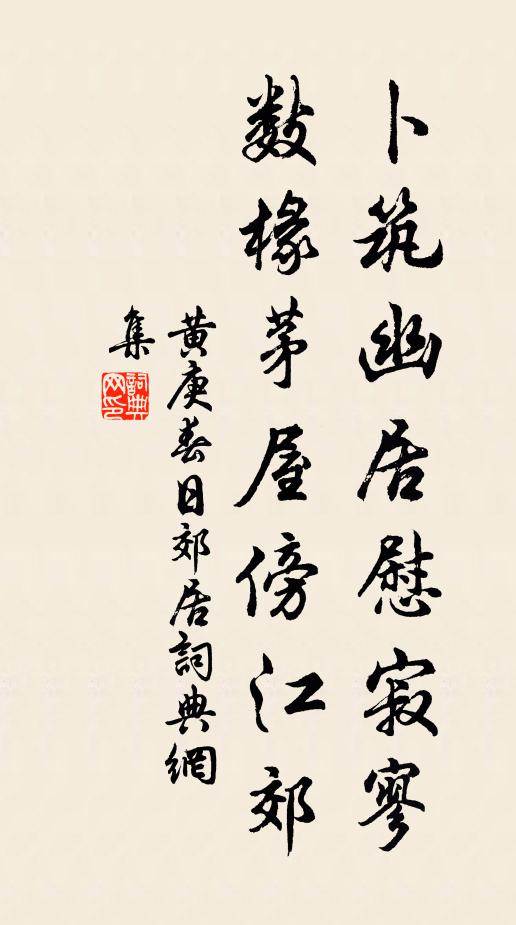 卜筑幽居慰寂寥
数椽茅屋傍江郊
黄庚春日郊居詞典網
集
詞典
网印